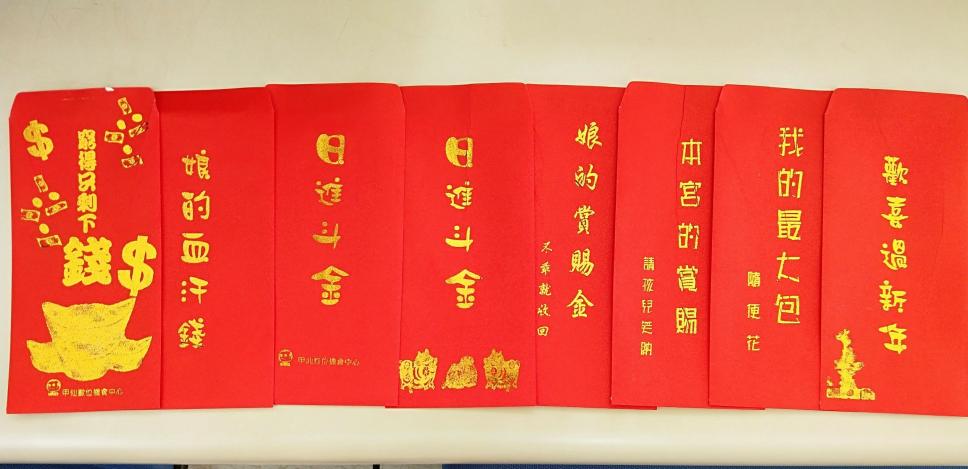 $
窮得只剩下
錢$
甲仙數位機會中心
娘的血汗錢
日進斗金
甲仙數位機會中心
日進斗金
娘的賞賜金
不乖就收回
本宮的賞賜
請孩兒笑納
我的最大包
隨便花
歡喜過新年